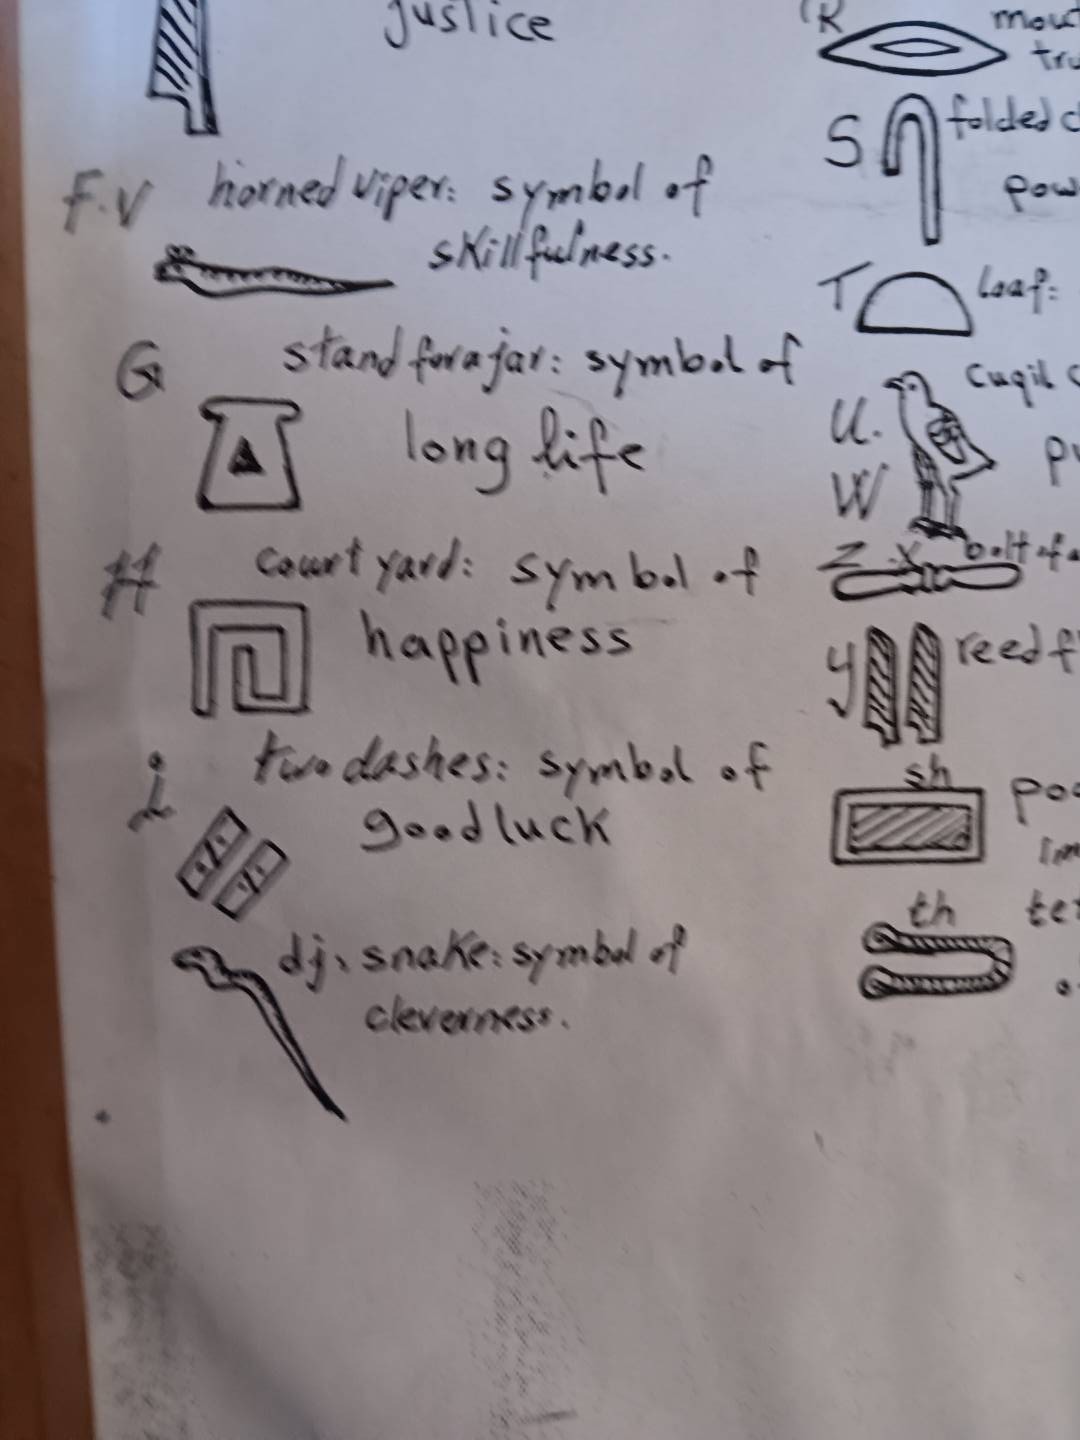 justice
F.V horned viper: symbol of
skillfulness.
G stand for a jar: symbol of
long life
H court yard: symbol of
happiness
i two dashes: symbol of
good luck
dj, snake: symbol of
cleverness.
R
S folded
T loaf:
U.
W
Z.X bolt of a
y reed f
sh
th